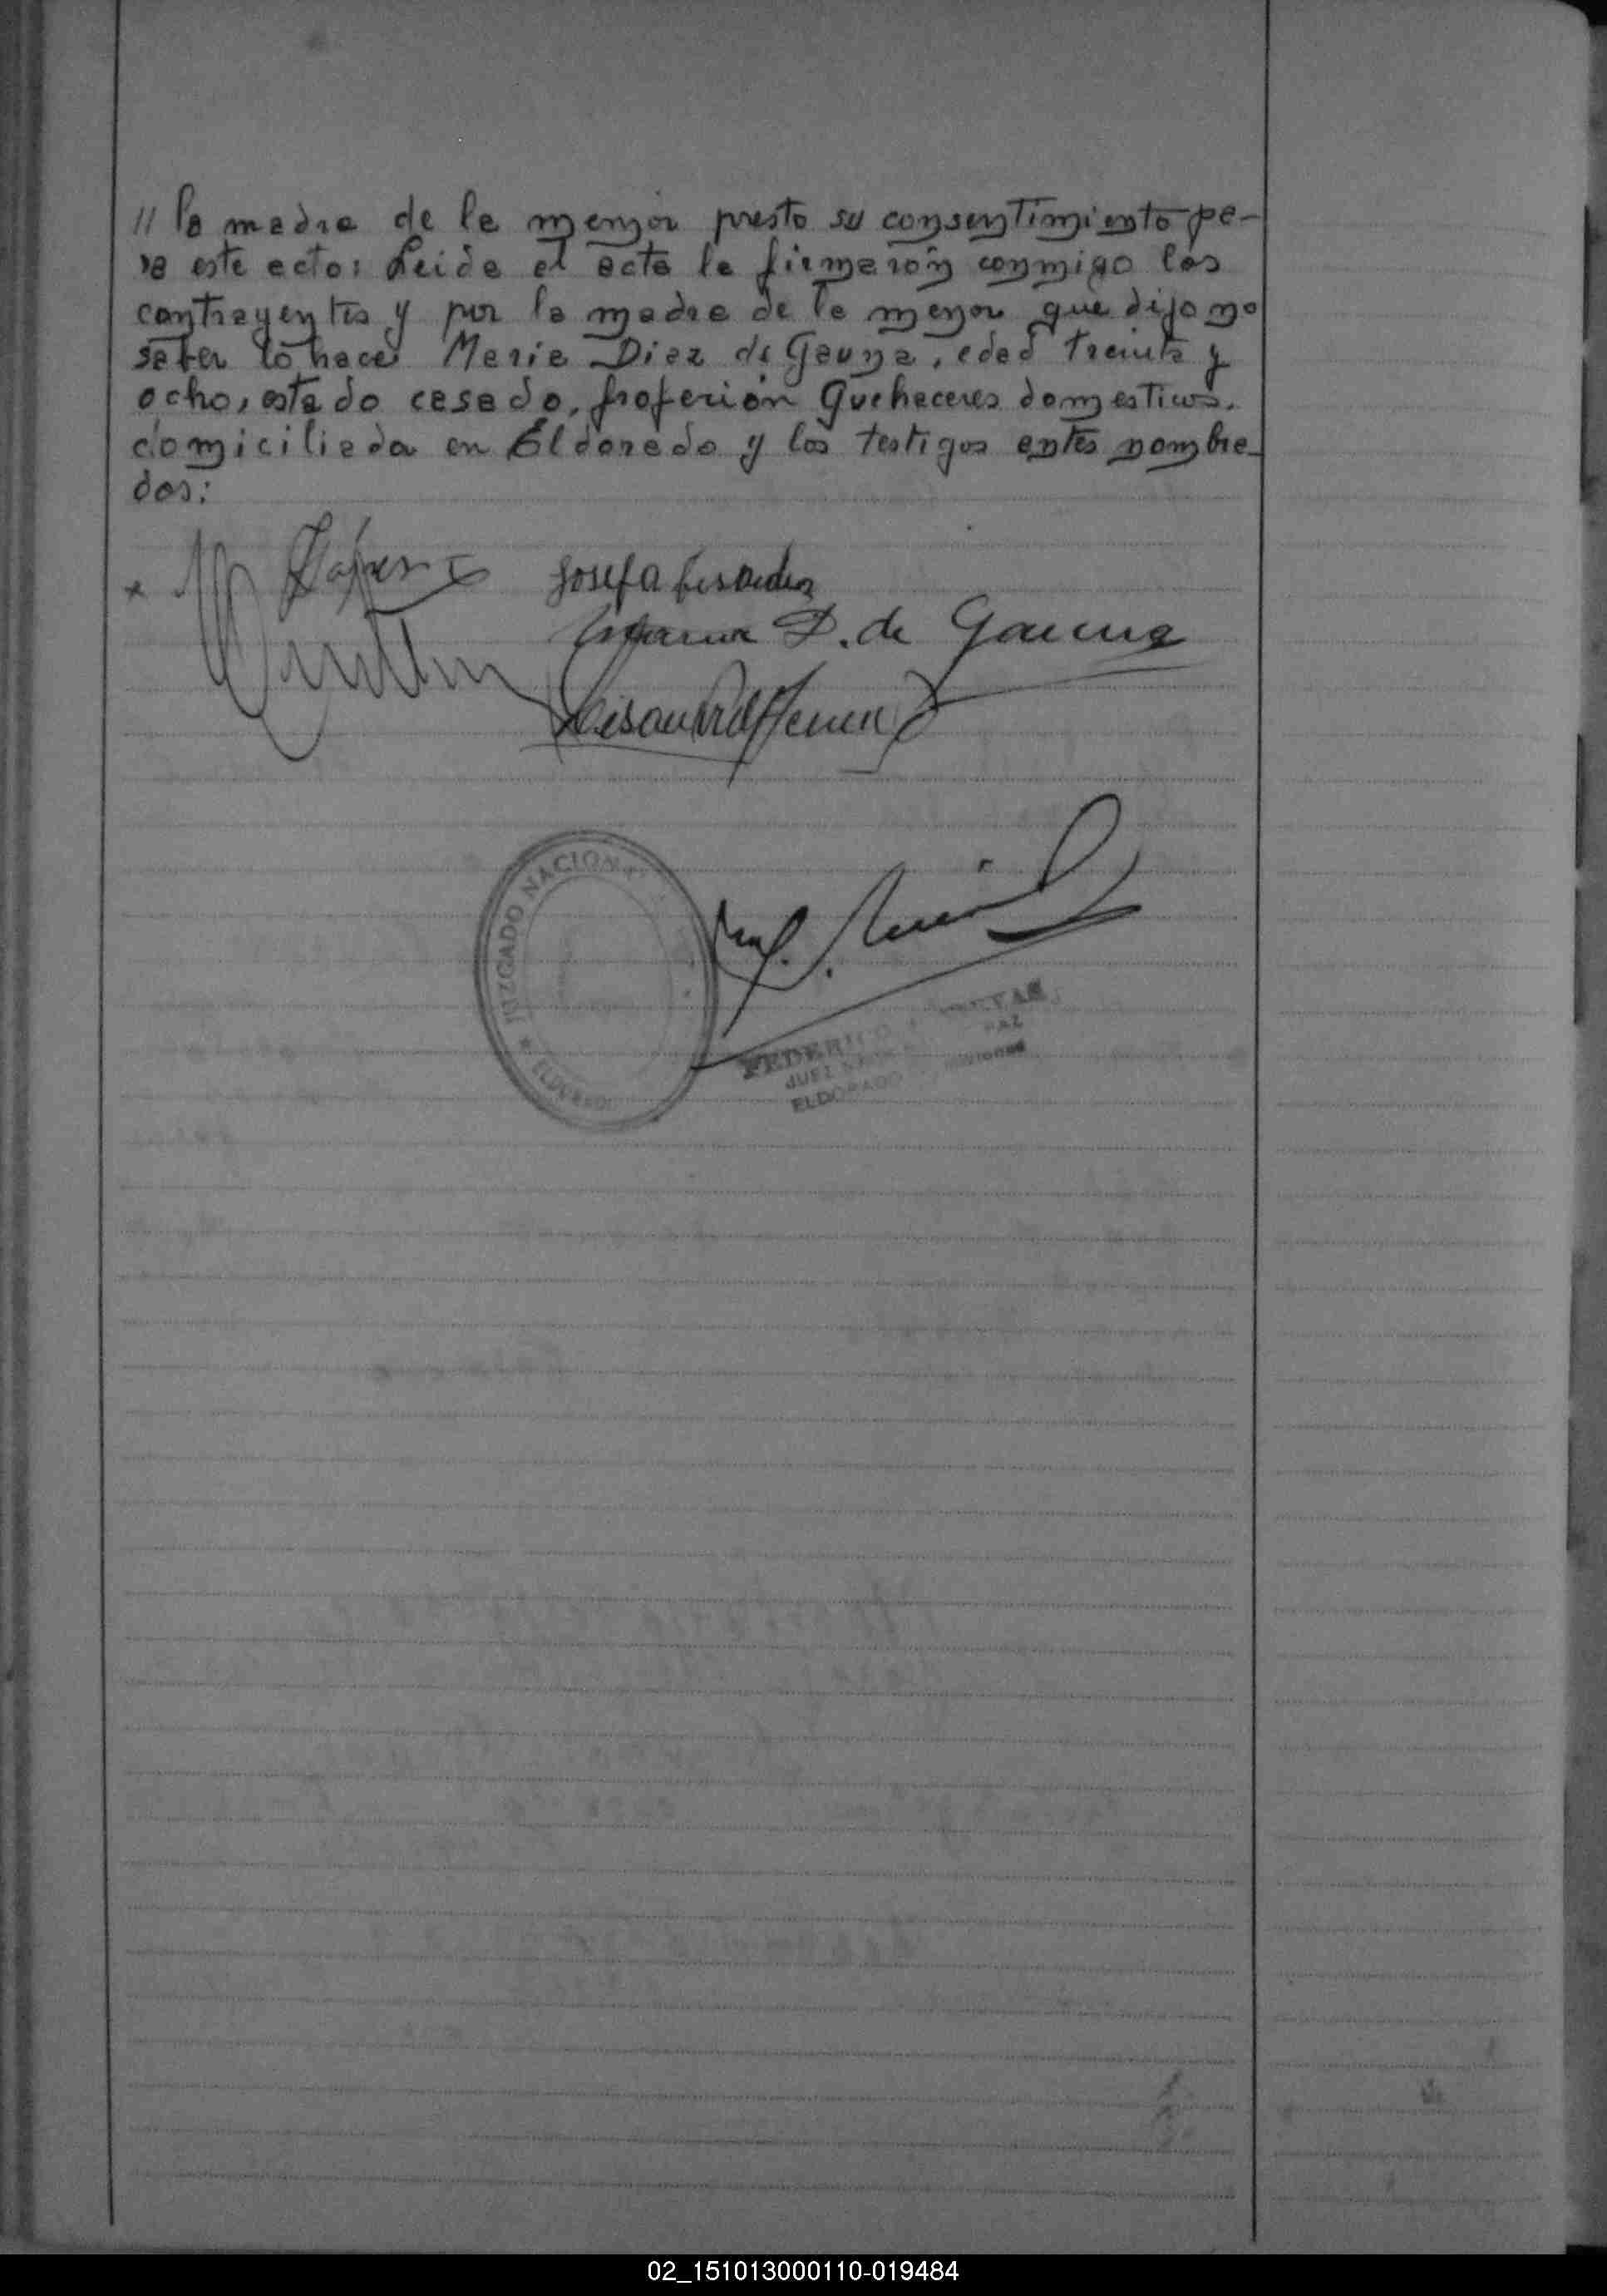 // la madre de la menor presto su consentimiento pa-
ra este acto: Leida el acta la firmarón conmigo los
contrayentes y por la madre de la menor que dijo no
saber lo hace Maria Diaz de Gauna, edad treinta y
ocho, estado casado, profesión Quehaceres domesticos,
domiciliada en Eldorado y los testigos antes nombra-
dos:
Josefa
D. de Gauna
JUZGADO NACIONAL
ELDORADO
FEDERICO
JUEZ PAZ
ELDORADO Misiones
02_151013000110-019484